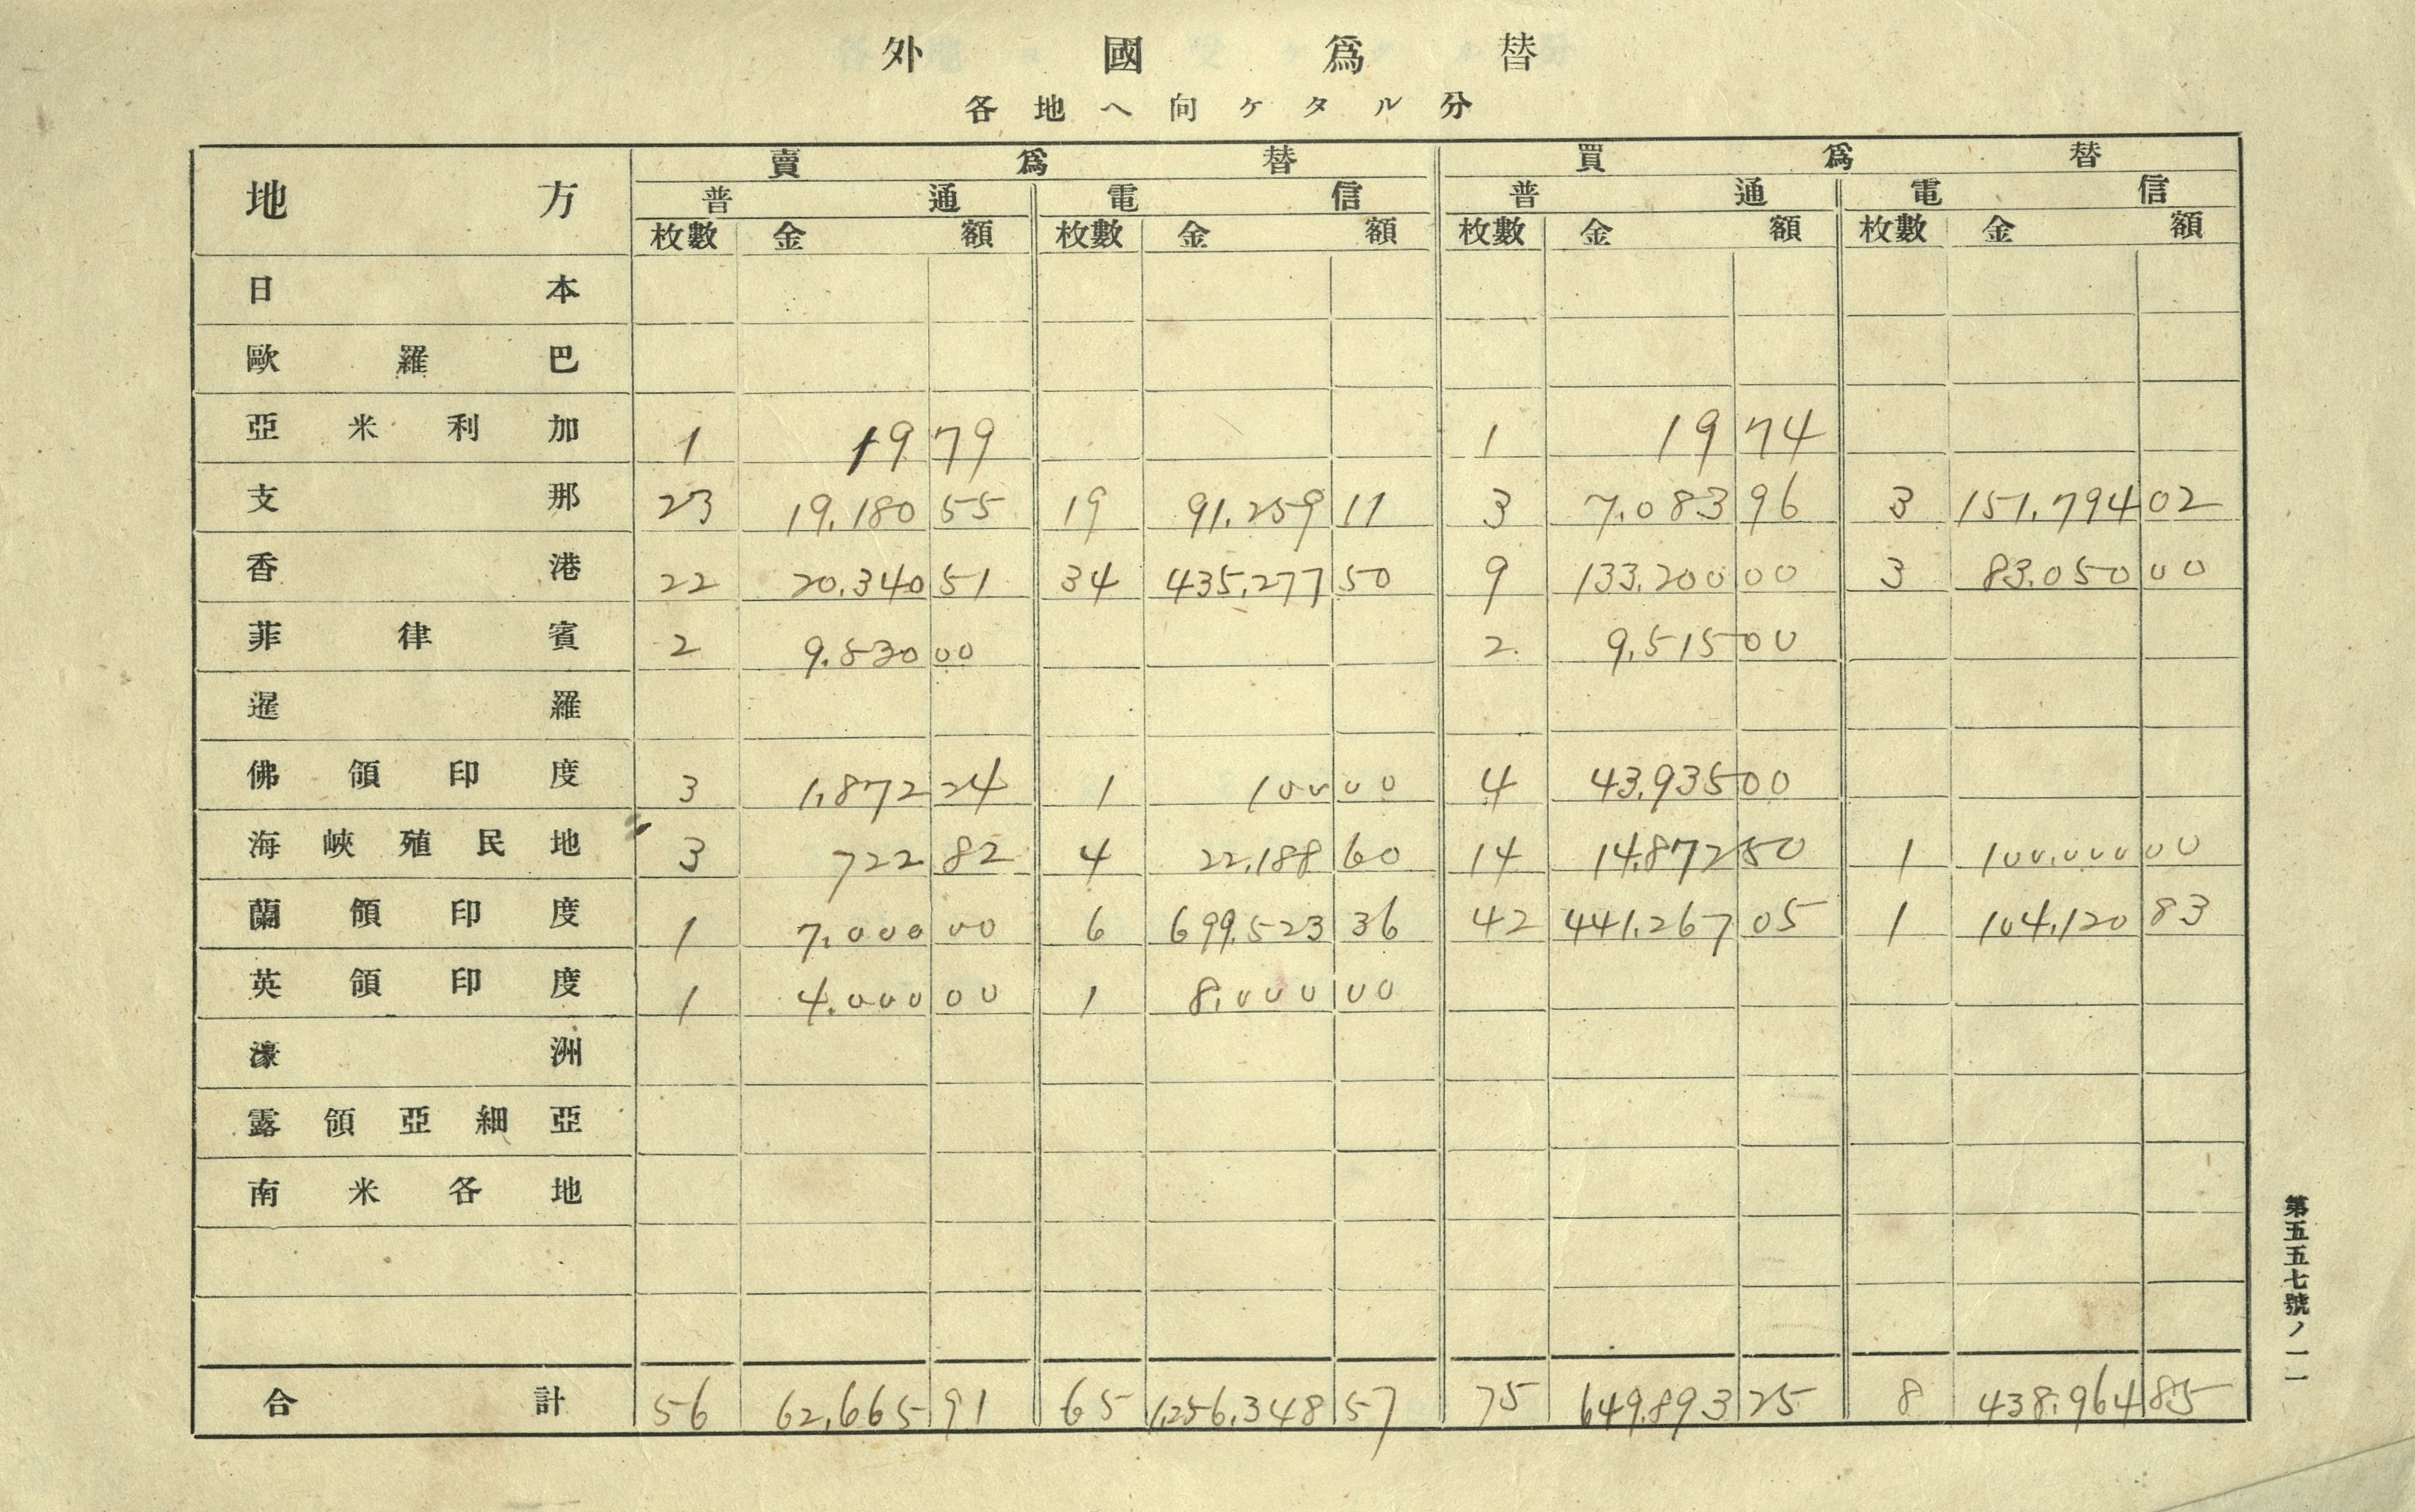 外國爲替
各地ヘ向ケタル分
地方 賣爲替 買爲替
普通 電信 普通 電信
枚數 金額 枚數 金額 枚數 金額 枚數 金額
日本
歐羅巴
亞米利加 1 19 79 1 19 74
支那 23 19,180 55 19 91,259 11 3 7,083 96 3 151,794 02
香港 22 20,340 51 34 435,277 50 9 133,200 00 3 83,050 00
菲律賓 2 9,530 00 2 9,515 00
暹羅
佛領印度 3 1,872 24 1 100 00 4 43,935 00
海峽殖民地 3 722 82 4 22,188 60 14 14,872 50 1 100,000 00
蘭領印度 1 7,000 00 6 699,523 36 42 441,267 05 1 104,120 83
英領印度 1 4,000 00 1 8,000 00
濠洲
露領亞細亞
南米各地
合計 56 62,665 91 65 1,256,348 57 75 649,893 25 8 438,964 85
第五五七號ノ一一